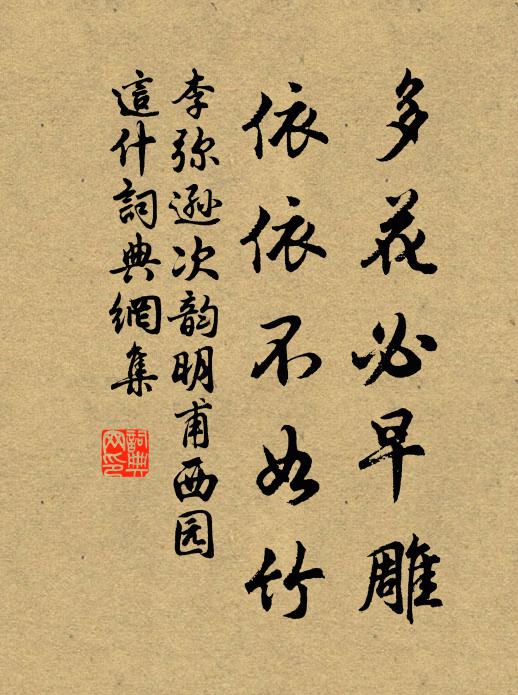 多花必早雕
依依不如竹
李弥逊次韵明甫西园
這什詞典網集
詞典
网印